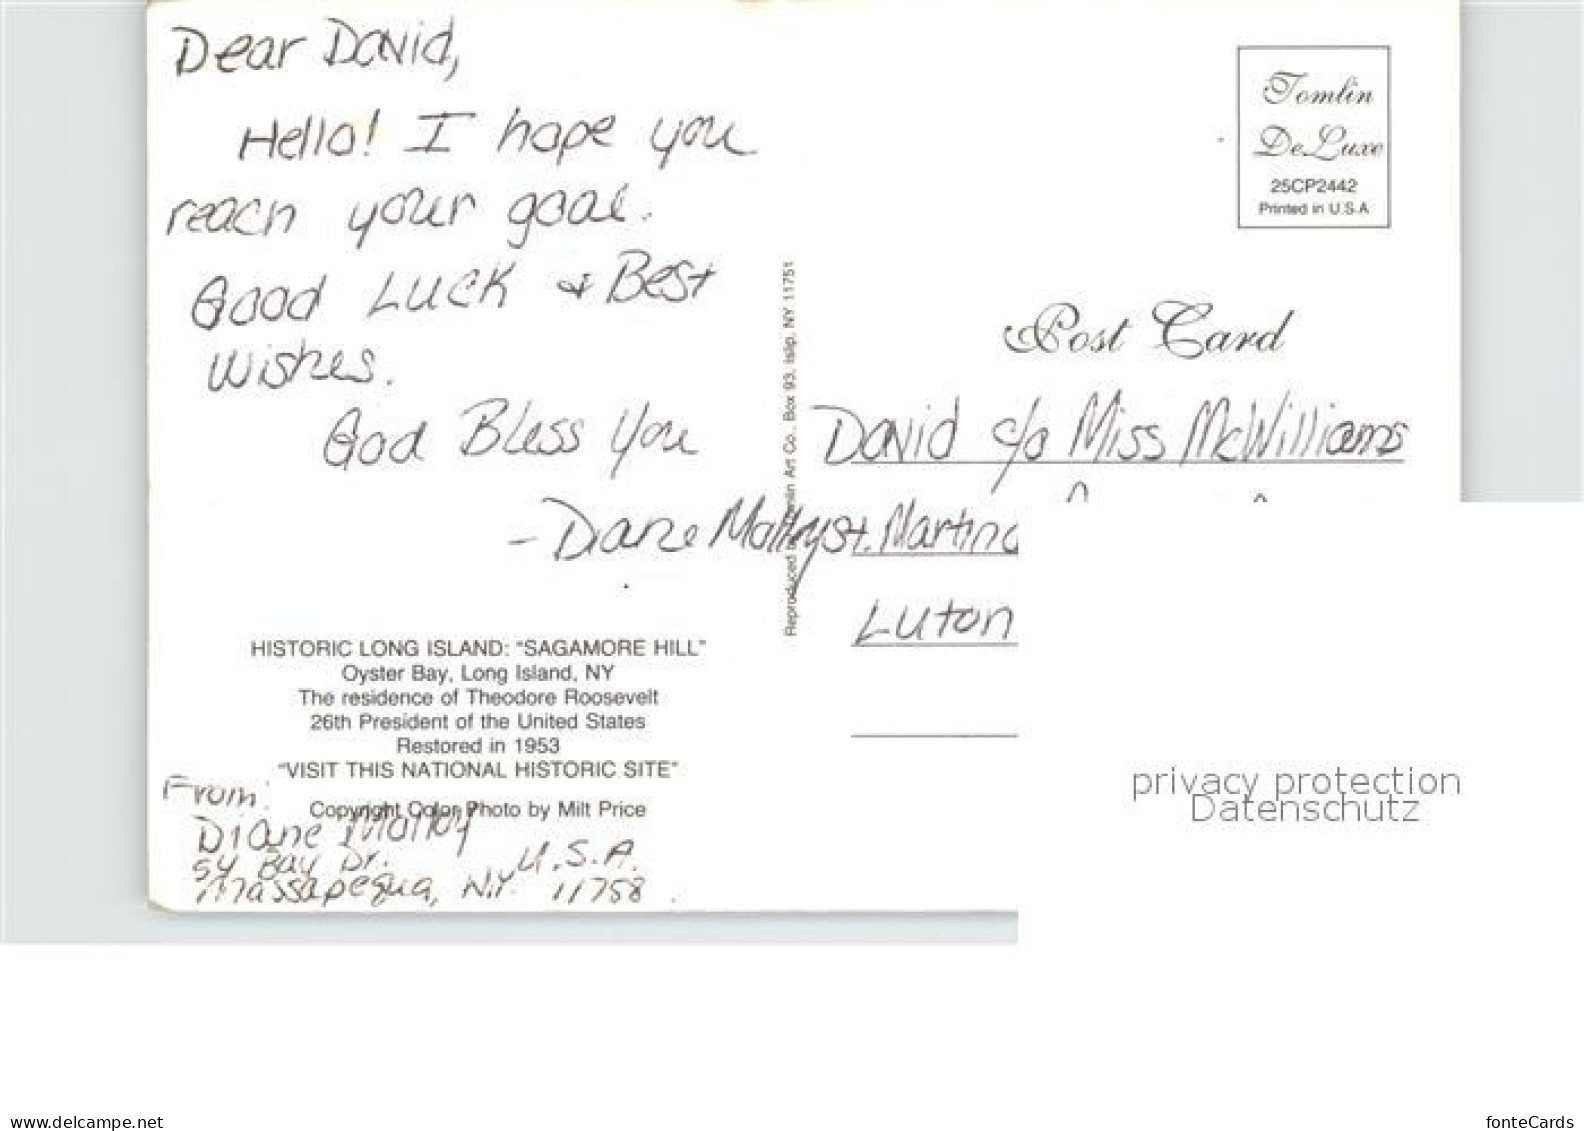 Dear David,
Hello! I hope you
reach your goal.
Good Luck & Best
Wishes.
God Bless You
- Diane Malloy
HISTORIC LONG ISLAND: "SAGAMORE HILL"
Oyster Bay, Long Island, NY
The residence of Theodore Roosevelt
26th President of the United States
Restored in 1953
"VISIT THIS NATIONAL HISTORIC SITE"
Copyright Color Photo by Milt Price
From:
Diane Malloy
54 Bay Dr. U.S.A.
Massapequa, N.Y. 11758
Reproduced by Tomlin Art Co., Box 93, Islip, NY 11751
Tomlin
DeLuxe
25CP2442
Printed in U.S.A
Post Card
David c/o Miss McWilliams
St. Martins
Luton
privacy protection
Datenschutz
www.delcampe.net
fonteCards